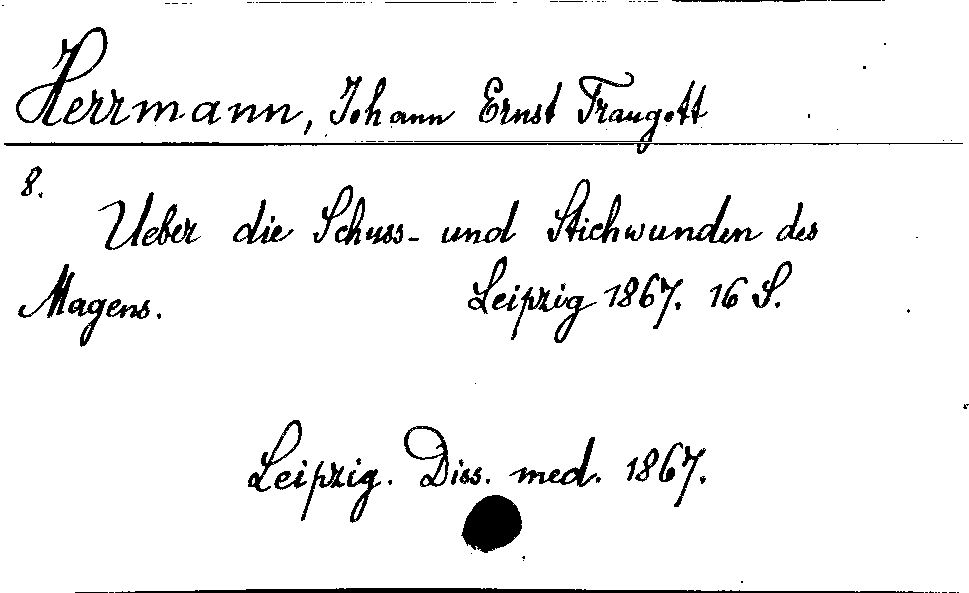 Herrmann, Johann Ernst Traugott
8.
Ueber die Schuss- und Stichwunden des
Magens. Leipzig 1867. 16 S.
Leipzig. Diss. med. 1867.